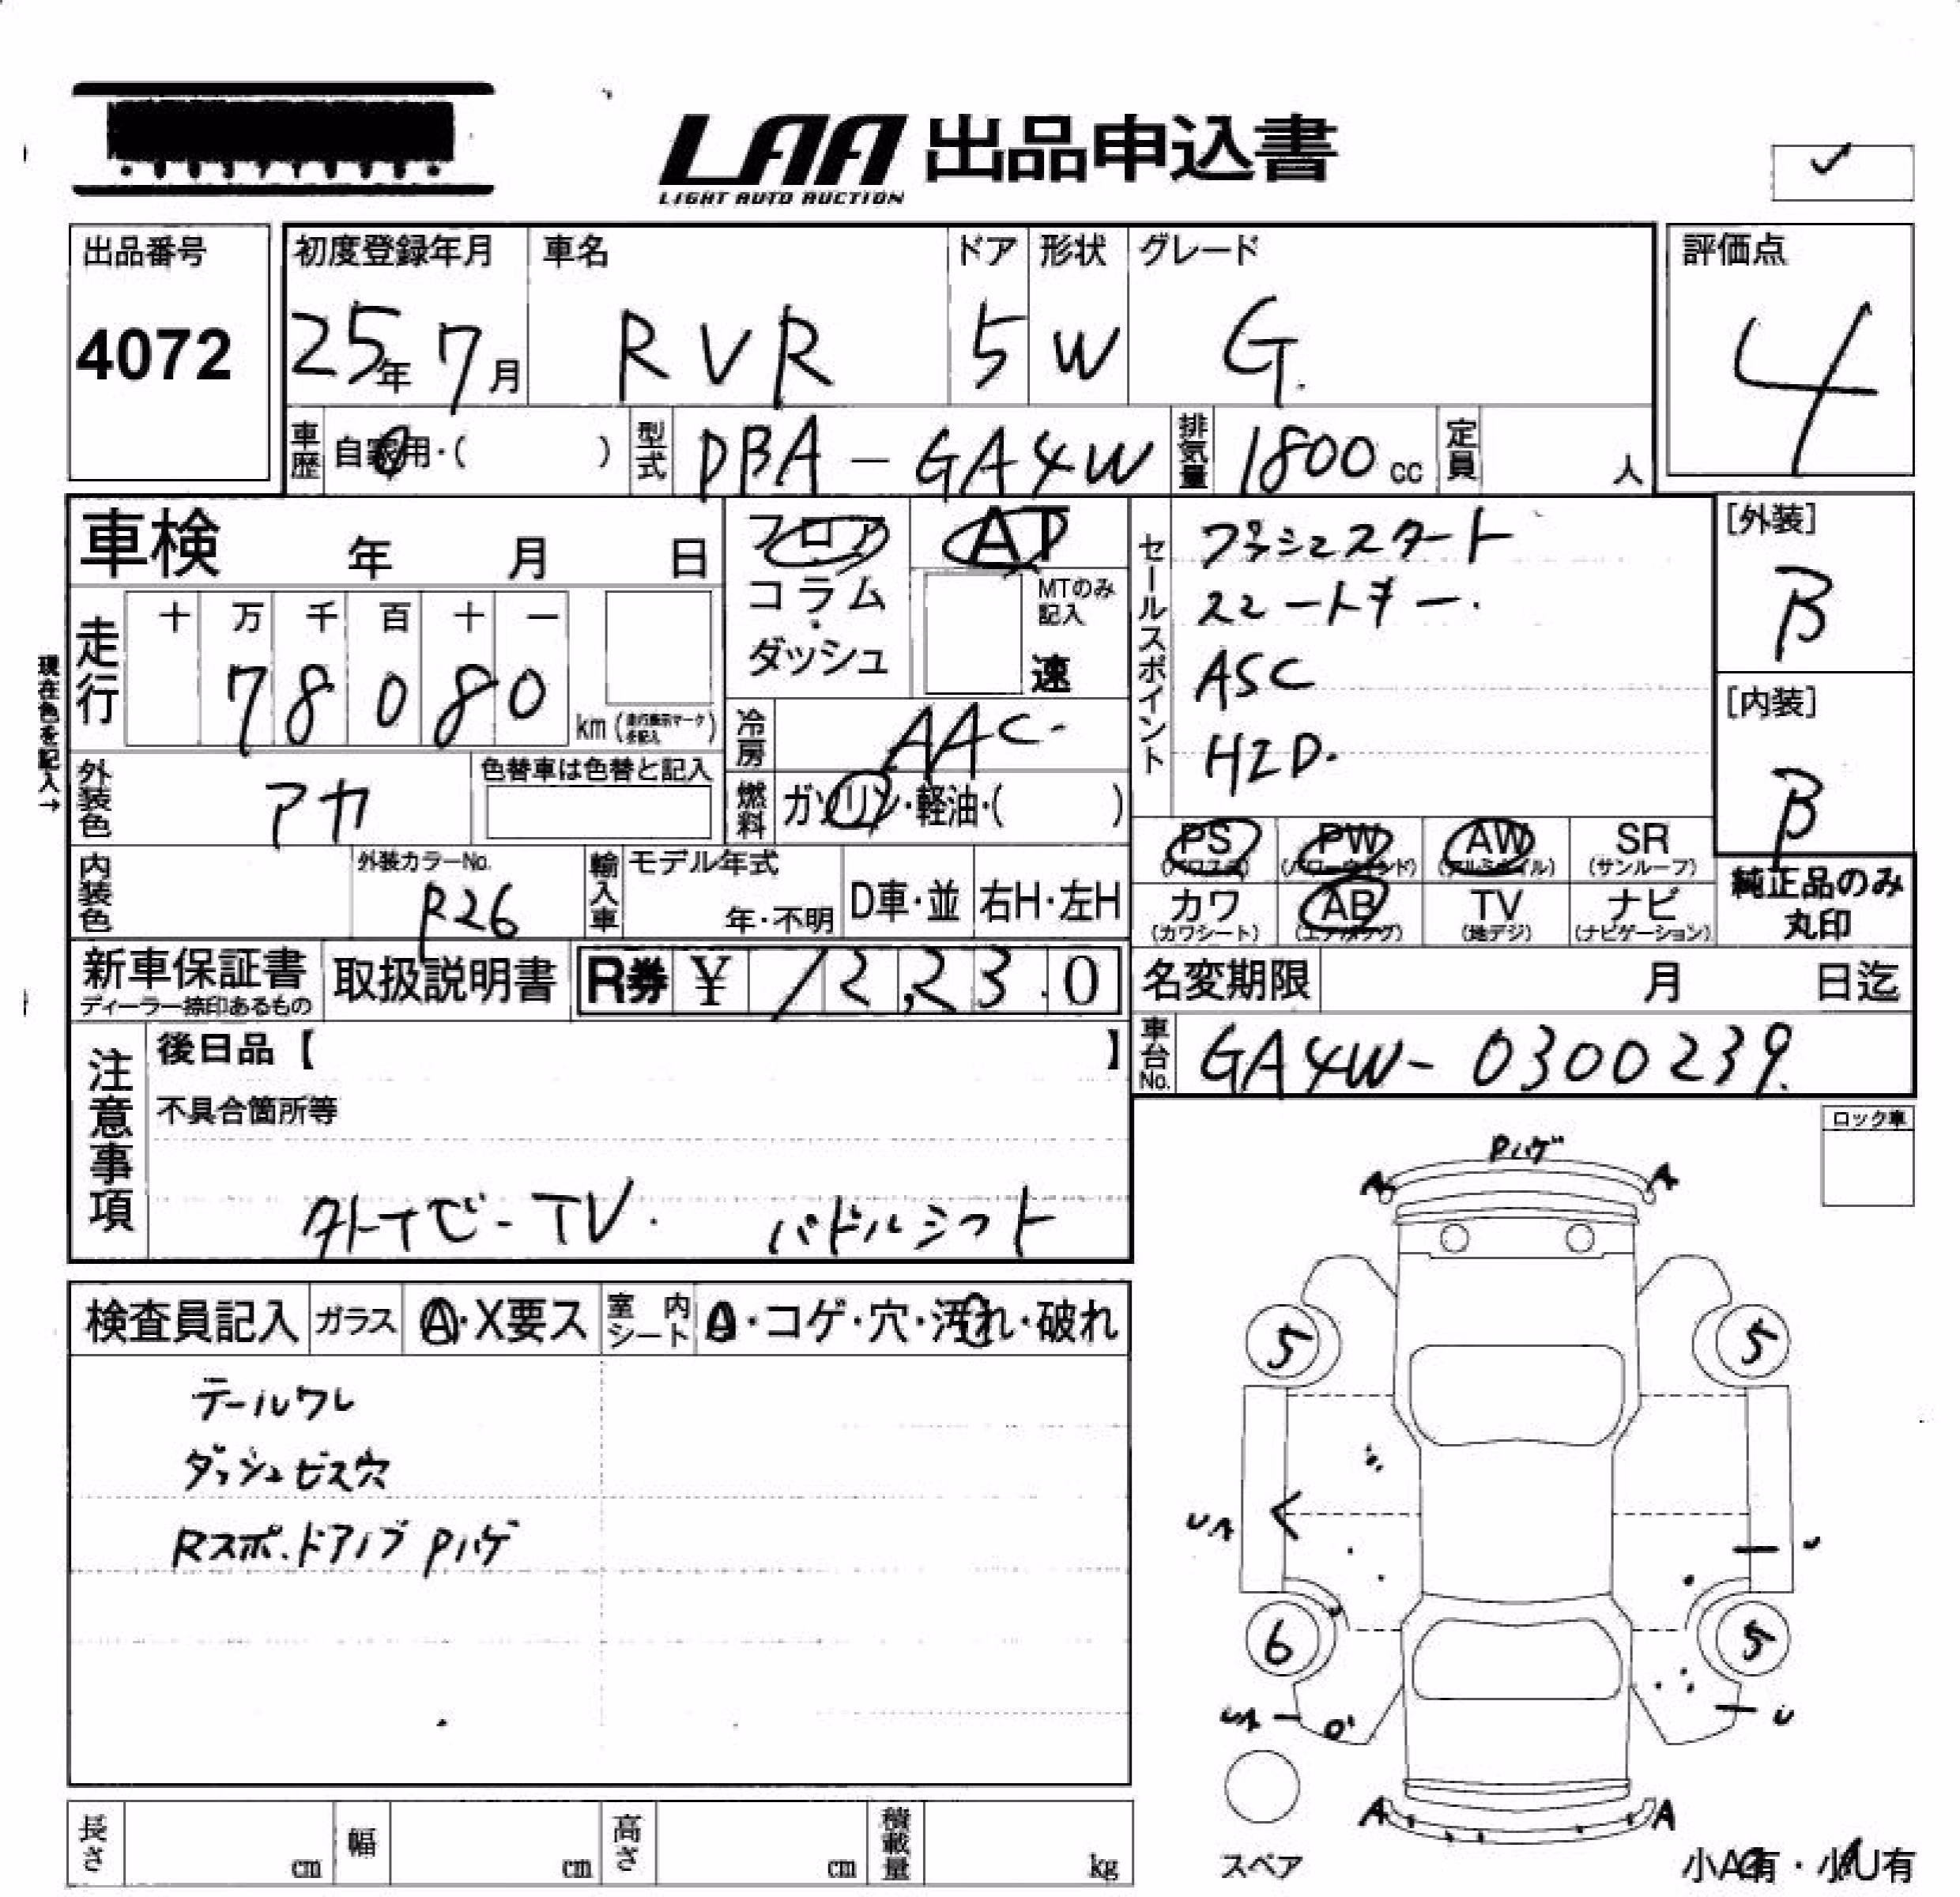 LAA 出品申込書
LIGHT AUTO AUCTION
出品番号
4072
初度登録年月
25年 7月
車名
RVR
ドア
5
形状
W
グレード
G
評価点
4
車歴
自家用・( )
型式
DBA-GA4W
排気量
1800cc
定員
人
車検 年 月 日
フロア
コラム
・
ダッシュ
AT
MTのみ
記入
速
セールスポイント
プッシュスタート
スマートキー.
ASC
HID.
[外装]
B
[内装]
B
現在色を記入→
走行
十 万 千 百 十 一
7 8 0 8 0
km
冷房
AAC
外装色
アカ
色替車は色替と記入
燃料
ガソリン・軽油・( )
PS
(パワステ)
PW
(パワーウィンド)
AW
(アルミホイル)
SR
(サンルーフ)
カワ
(カワシート)
AB
(エアバッグ)
TV
(地デジ)
ナビ
(ナビゲーション)
純正品のみ
丸印
内装色
外装カラーNo.
P26
輸入車
モデル年式
年・不明
D車・並
右H・左H
新車保証書
ディーラー捺印あるもの
取扱説明書
R券 ¥ 12,230
名変期限 月 日迄
車台No.
GA4W-0300239.
注意事項
後日品【 】
不具合箇所等
TV. パドルシフト
ロック車
Pハゲ
A A
検査員記入
ガラス
A・X要ス
室内シート
A・コゲ・穴・汚れ・破れ
テールワレ
ダッシュビス穴
Rスポ.ドアノブ Pハゲ
5 5
UA
U
6 5
UA
U
A A
スペア
小A有・小U有
長さ
cm
幅
cm
高さ
cm
積載量
kg